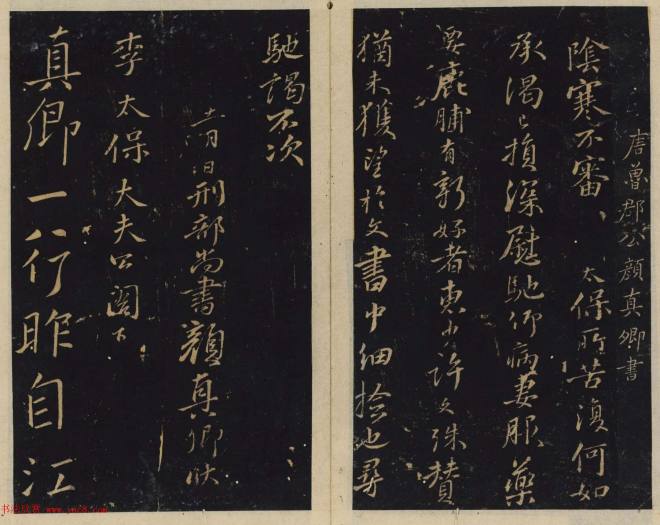 唐魯郡公顏真卿書
陰寒不審、太保所苦復何如
承渴已損深慰馳仰病妻服藥
要鹿脯有新好者惠少許文殊贊
猶未獲望於文書中細撿也尋
馳謁不次
十一月日刑部尚書顏真卿狀
李太保大夫公閣下
真卿一八行昨自江